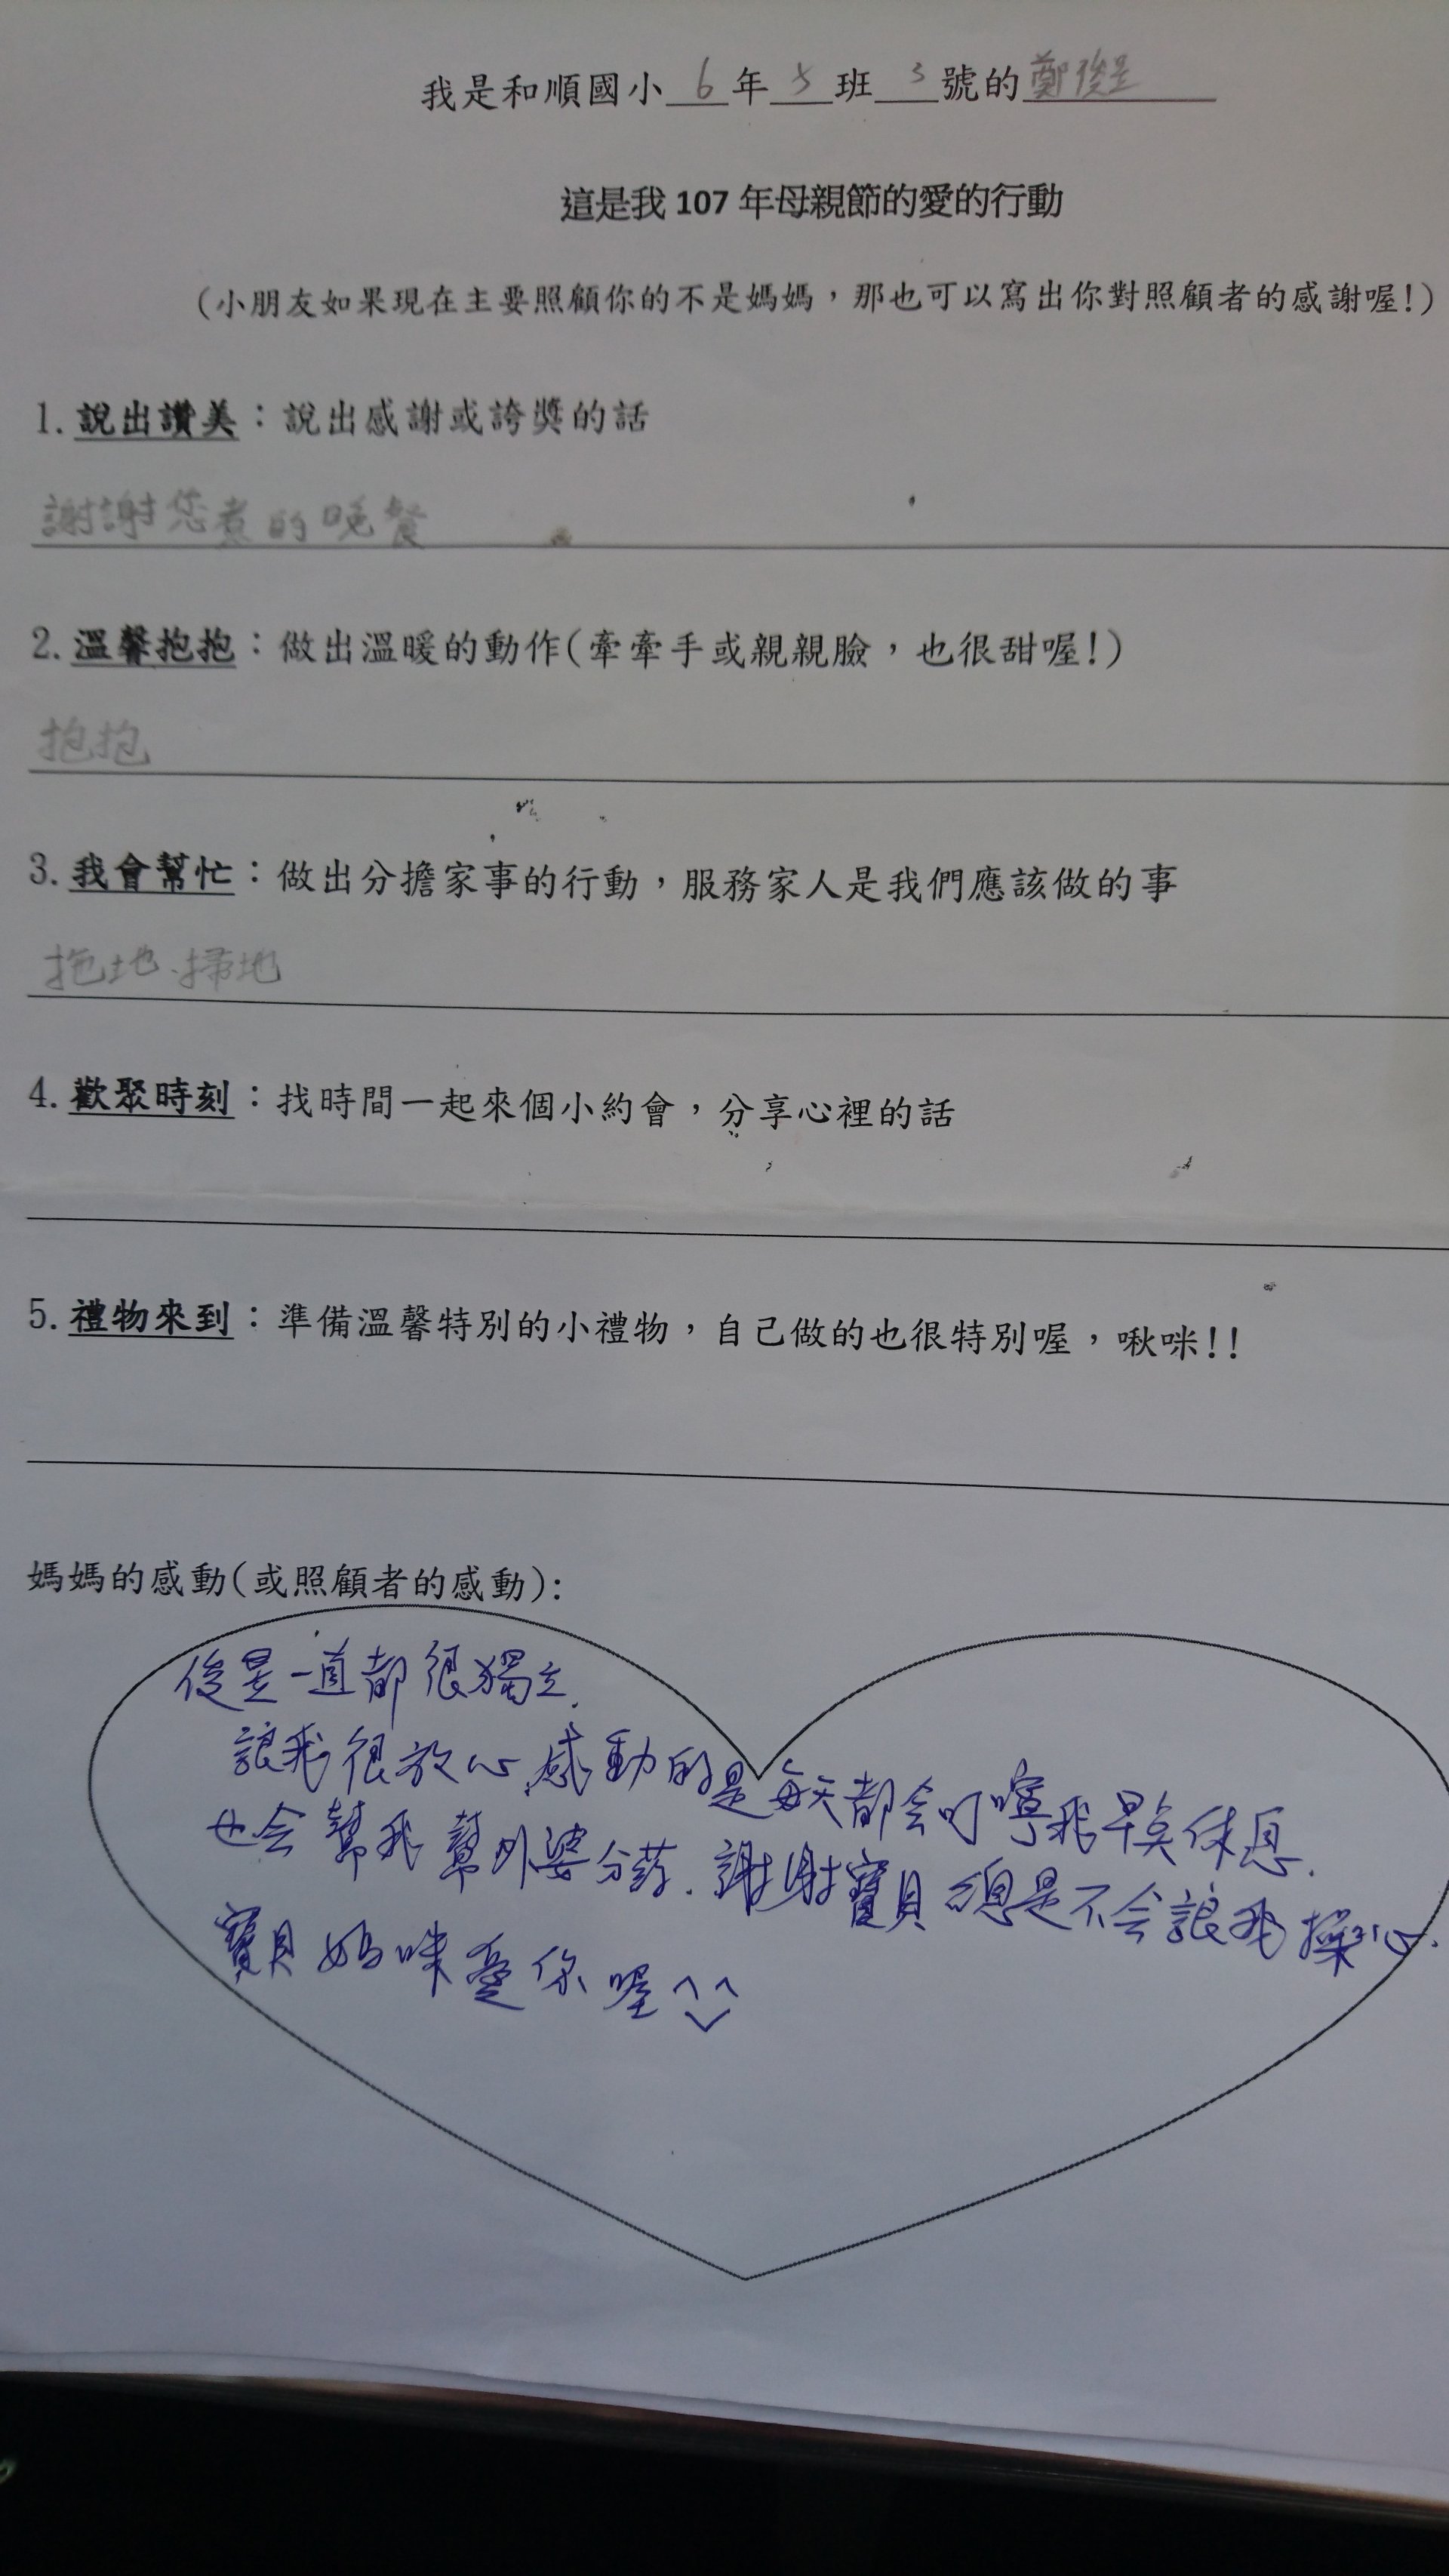 我是和順國小 6 年 5 班 3 號的 鄭俊昰
這是我 107 年母親節的愛的行動
(小朋友如果現在主要照顧你的不是媽媽，那也可以寫出你對照顧者的感謝喔!)
1. 說出讚美：說出感謝或誇獎的話
謝謝您煮的晚餐
2. 溫馨抱抱：做出溫暖的動作(牽牽手或親親臉，也很甜喔!)
抱抱
3. 我會幫忙：做出分擔家事的行動，服務家人是我們應該做的事
拖地、掃地
4. 歡聚時刻：找時間一起來個小約會，分享心裡的話
5. 禮物來到：準備溫馨特別的小禮物，自己做的也很特別喔，啾咪!!
媽媽的感動(或照顧者的感動):
俊昰一直都很獨立.
讓我很放心,感動的是每天都会叮嚀我早矣休息.
也会幫我幫外婆分蒡.謝謝寶貝總是不会讓我操心.
寶貝媽咪愛你喔^^